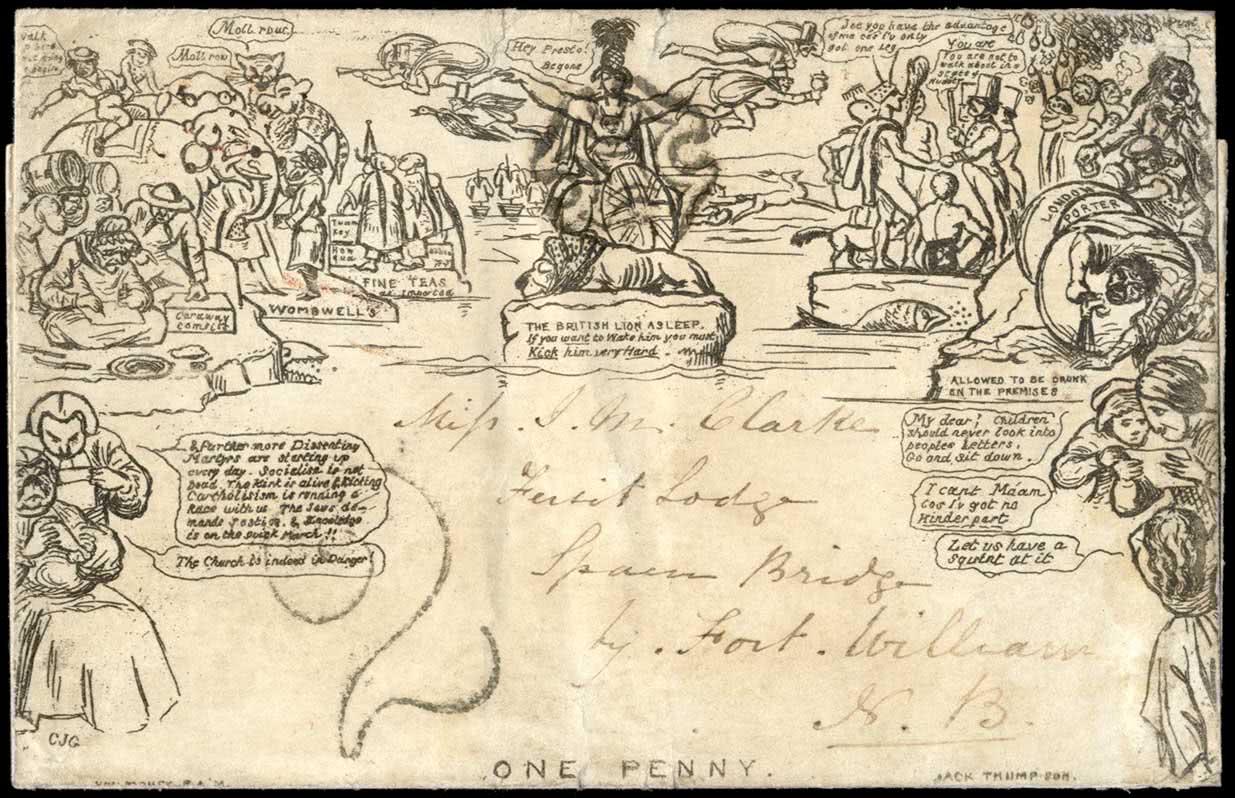 Moll row!
Moll row
Hey Presto!
Begone
I see you have the advantage
of me cos I'v only
got one Leg
You are
You are not to
walk about in a
state of
Twan
key
How
qua
FINE TEAS
as Imported
WOMBWELL'S
Caraway
Comfits
LONDON
PORTER
THE BRITISH LION ASLEEP.
If you want to Wake him you must
Kick him very Hard.
ALLOWED TO BE DRUNK
ON THE PREMISES
& further more Dissenting
Martyrs are starting up
every day. Socialism is not
Dead. The Kirk is alive & Kicking
Catcholisism is running a
Race with us The Jews de-
mands Jostice, & Knowledge
is on the quick March!!
The Church is indeed in Danger!
My dear! Children
should never look into
peoples Letters.
Go and sit down.
I cant Máam
Cos I'v got no
Hinder part
Let us have a
Squint at it
Miss J. M. Clarke
Lodge
Spaen Bridge
by. Fort. William
N. B.
2
CJG
ONE PENNY.
JACK THUMPSON.